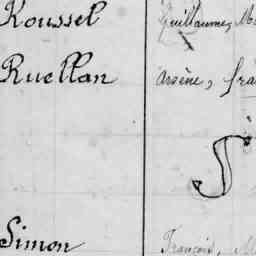 Roussel Guillaume, M
Ruellan Arsène, fra
S
Simon François, M